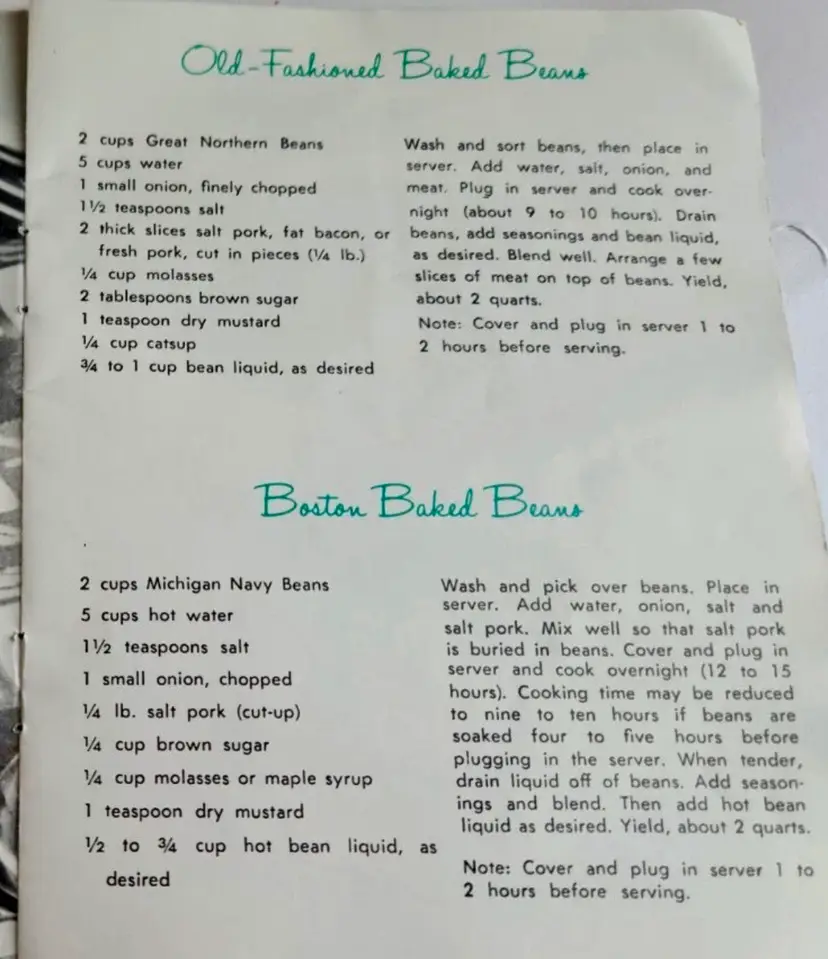 Old-Fashioned Baked Beans
2 cups Great Northern Beans
5 cups water
1 small onion, finely chopped
1½ teaspoons salt
2 thick slices salt pork, fat bacon, or
fresh pork, cut in pieces (¼ lb.)
¼ cup molasses
2 tablespoons brown sugar
1 teaspoon dry mustard
¼ cup catsup
¾ to 1 cup bean liquid, as desired
Wash and sort beans, then place in
server. Add water, salt, onion, and
meat. Plug in server and cook over-
night (about 9 to 10 hours). Drain
beans, add seasonings and bean liquid,
as desired. Blend well. Arrange a few
slices of meat on top of beans. Yield,
about 2 quarts.
Note: Cover and plug in server 1 to
2 hours before serving.
Boston Baked Beans
2 cups Michigan Navy Beans
5 cups hot water
1½ teaspoons salt
1 small onion, chopped
¼ lb. salt pork (cut-up)
¼ cup brown sugar
¼ cup molasses or maple syrup
1 teaspoon dry mustard
½ to ¾ cup hot bean liquid, as
desired
Wash and pick over beans. Place in
server. Add water, onion, salt and
salt pork. Mix well so that salt pork
is buried in beans. Cover and plug in
server and cook overnight (12 to 15
hours). Cooking time may be reduced
to nine to ten hours if beans are
soaked four to five hours before
plugging in the server. When tender,
drain liquid off of beans. Add season-
ings and blend. Then add hot bean
liquid as desired. Yield, about 2 quarts.
Note: Cover and plug in server 1 to
2 hours before serving.